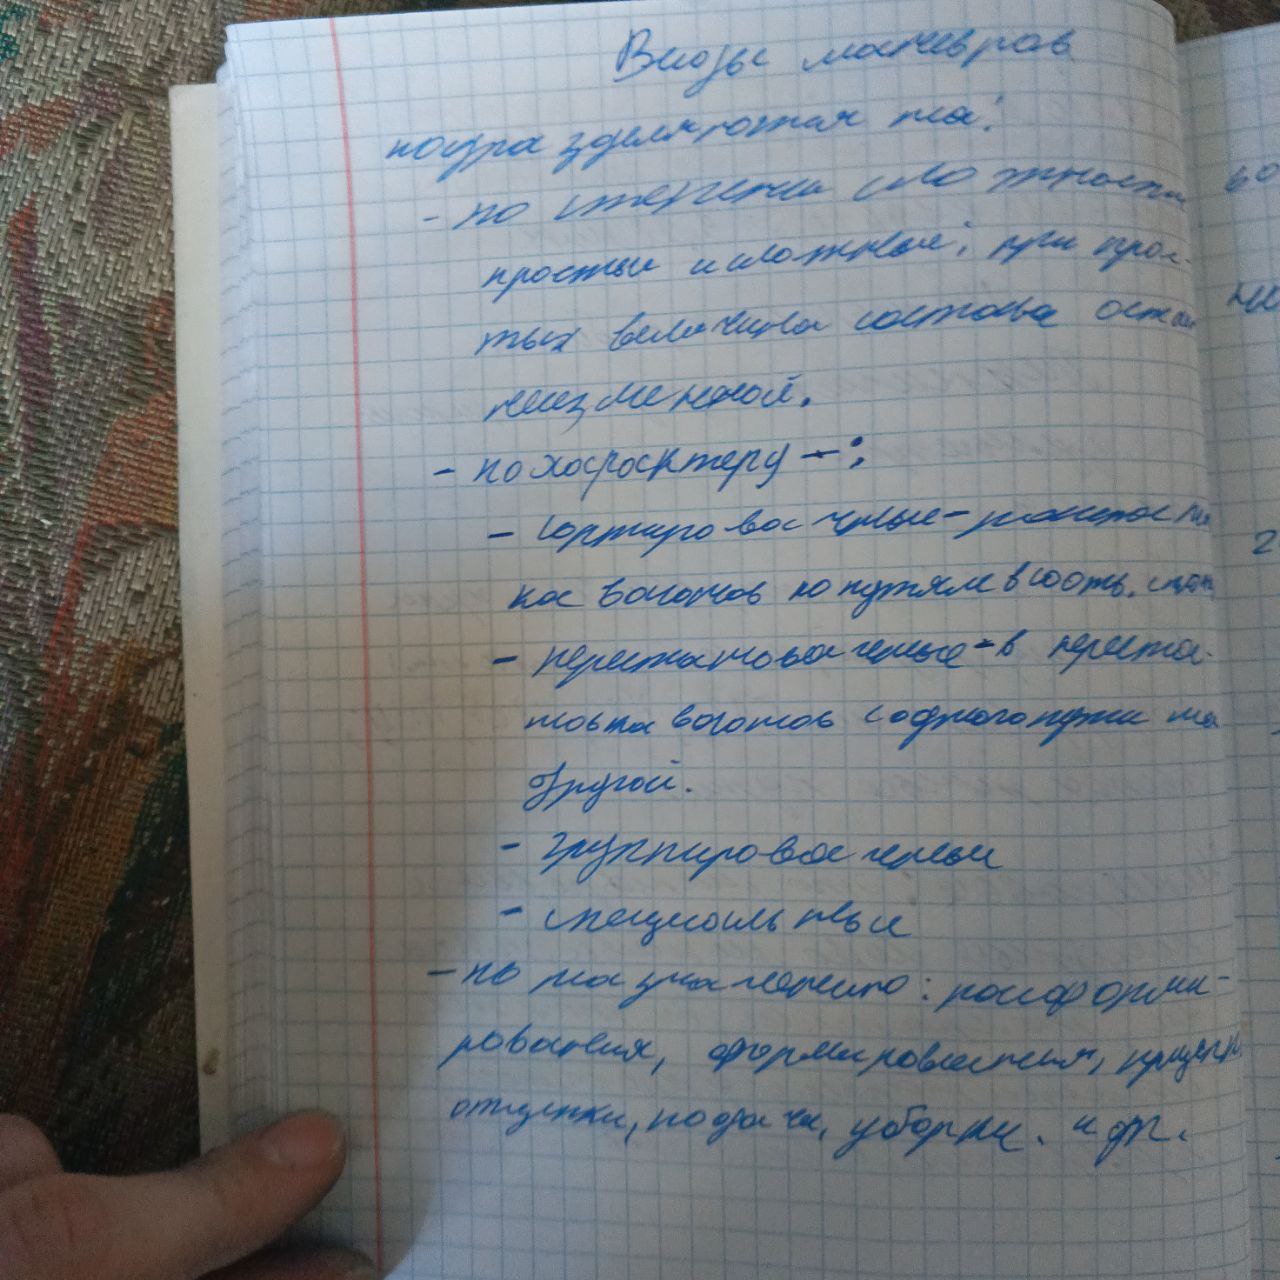 Виды маневров
подразделяются на:
- по степени сложности
простые и сложные; при прос-
тых величина состава остаё
неизменной.
- по характеру - :
- сортировочные - расстанов
ка вагонов по путям в соотв. с
- перестановочные - в переста-
новка вагонов с одного пути на
другой.
- группировочные
- специальные
- по назначению: расформи-
рования, формирования, прицепки
отцепки, подачи, уборки. и др.
2